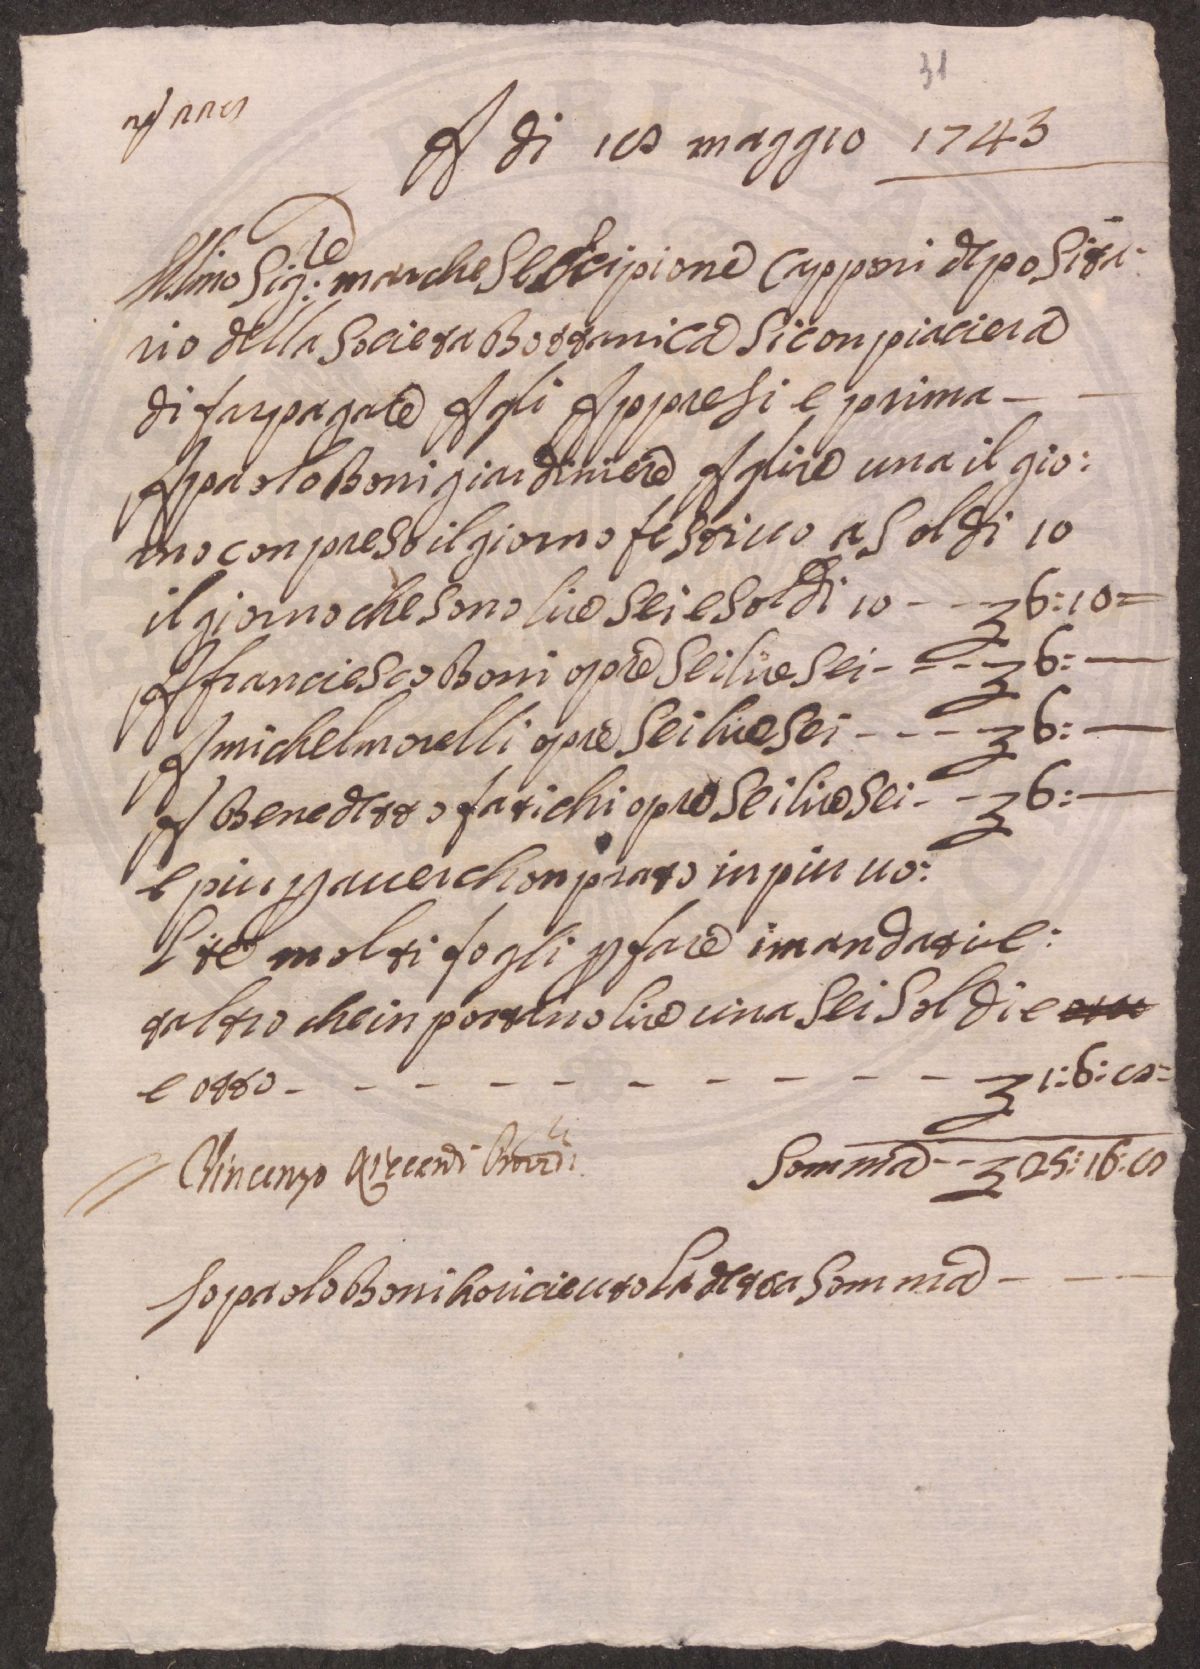 31
A di 18 maggio 1743
Illmo Sig:re marchese Scipione Capponi deposita:
rio della Societa Bottanica si conpiaciera
di far pagare A gli Appresi e prima - -
A paolo Boni giardiniere A lire una il gio:
rno conpreso il giorno festiuo a soldi 10
il giorno che sono lire sei e soldi 10 - - - 6:10=
A franciesco Boni opre sei lire sei - - - 6:—
A michel morelli opre sei lire sei - - - - 6:—
A Benedetto farichi opre sei lire sei - - 6:—
e piu p auer chonprato in piu uo:
lte molti fogli p fare i mandati e:
taltro che inportano lire una sei soldi e
e otto - - - - - - - - - - - 1:6:8=
Vincenzo
Somma - - 25:16:8
Io paolo Boni ho riceuto la detta somma - - -